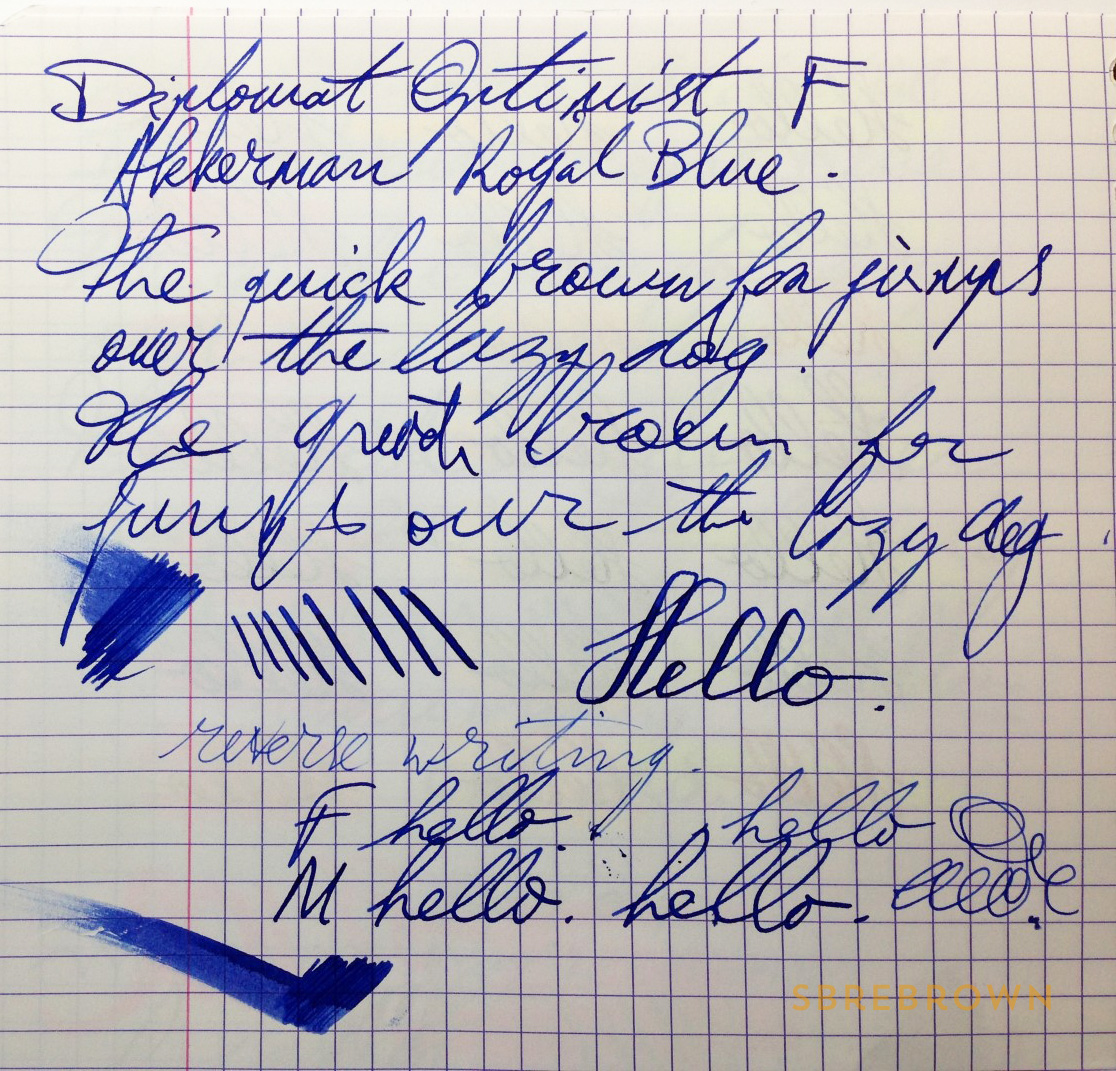 Diplomat Optimist F
Akkerman Royal Blue.
The quick brown fox jumps
over the lazy dog!
The quick brown fox
jumps over the lazy dog
Hello.
reverse writing.
F hello. hello
M hello. hello.
SBREBROWN